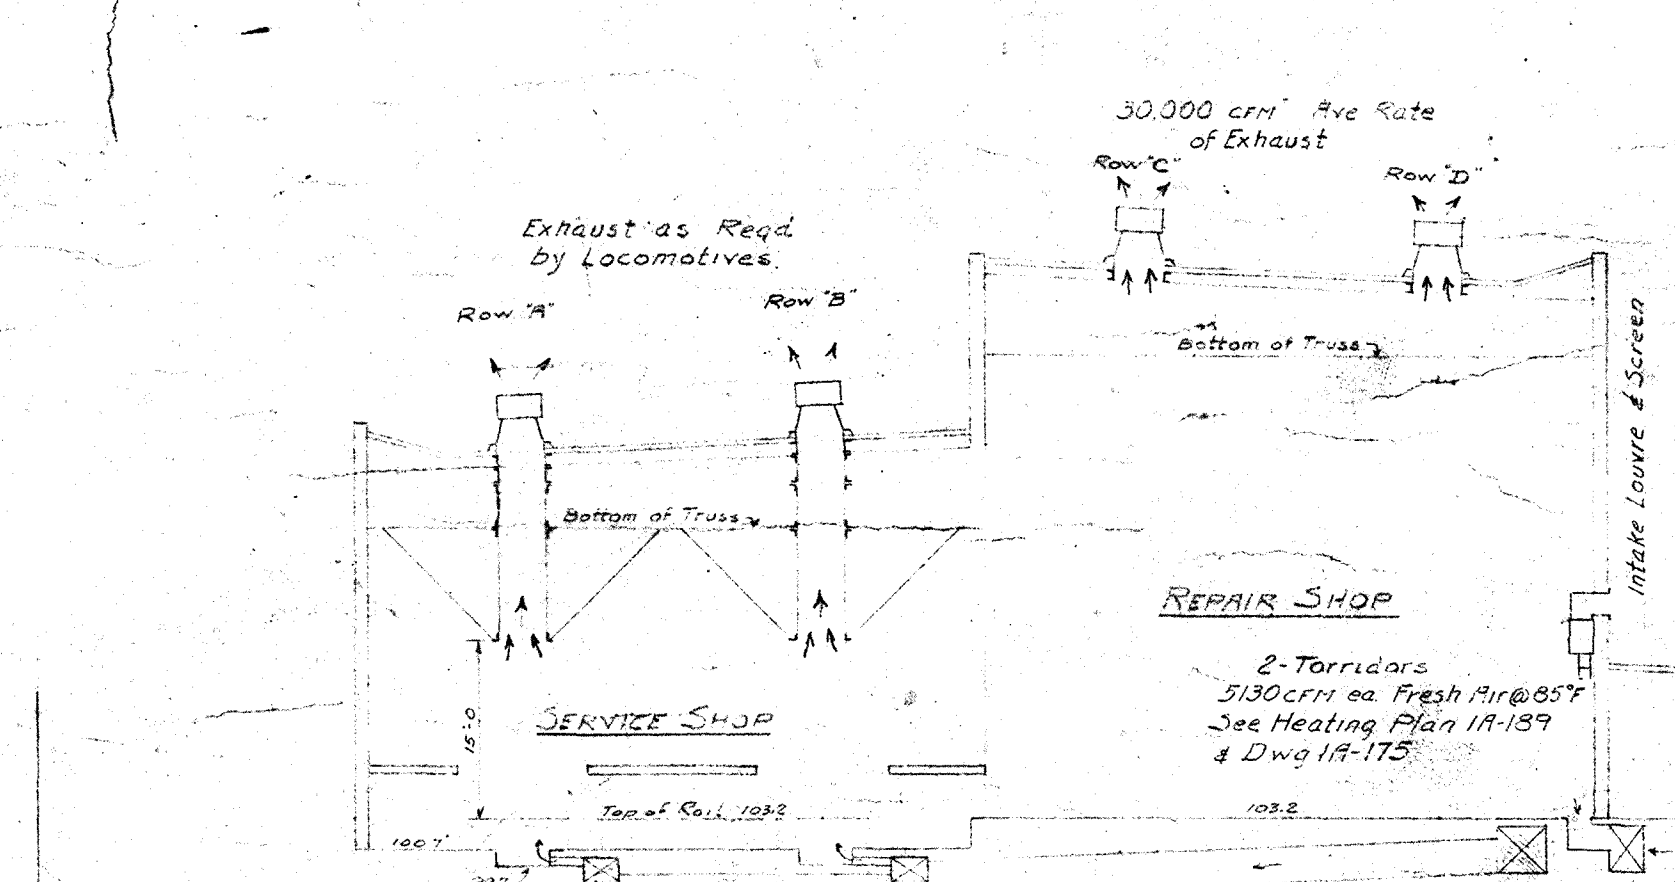 30,000 CFM Ave Rate
of Exhaust
Row "C"
Row "D"
Exhaust as Reqd
by Locomotives.
Row "A"
Row "B"
Bottom of Truss
Intake Louvre & Screen
Bottom of Truss
REPAIR SHOP
2-Torridors
5130 CFM ea. Fresh Air @ 85°F
See Heating Plan 1A-189
& Dwg 1A-175
SERVICE SHOP
15'-0
Top of Rail 103.2
103.2
100.7